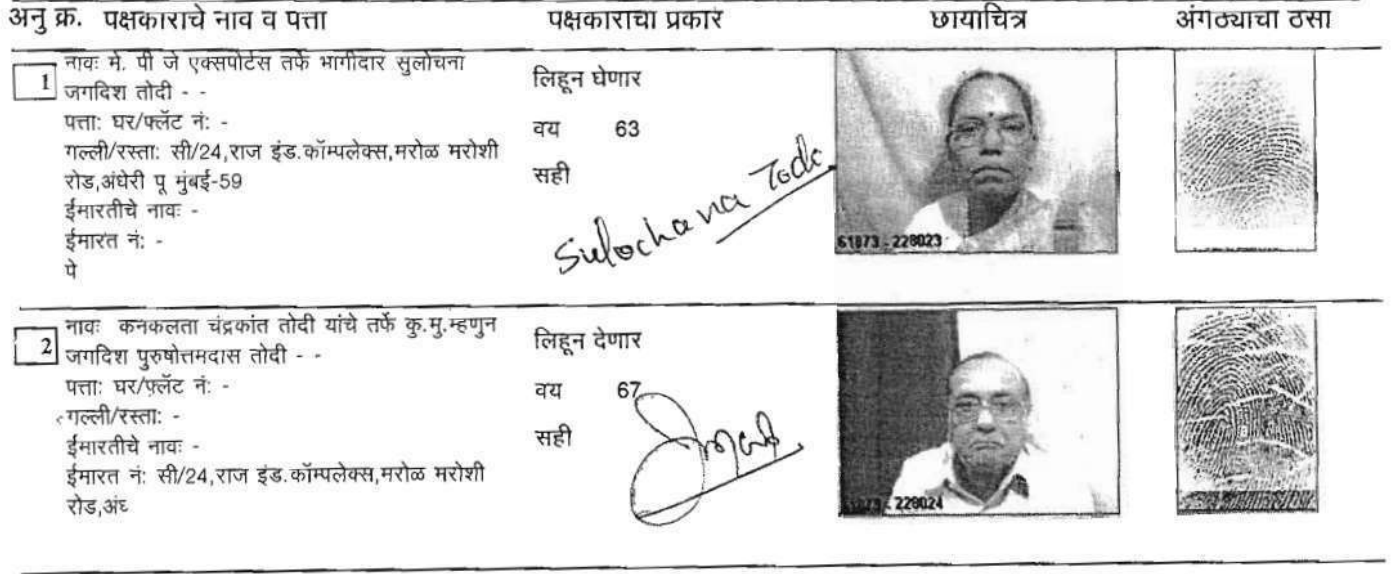 अनु क्र. पक्षकाराचे नाव व पत्ता पक्षकाराचा प्रकार छायाचित्र अंगठ्याचा ठसा
1 नावः मे. पी जे एक्सपोर्टस तर्फे भागीदार सुलोचना
जगदिश तोदी - -
पत्ता: घर/फ्लॅट नं: -
गल्ली/रस्ता: सी/24,राज इंड.कॉम्पलेक्स,मरोळ मरोशी
रोड,अंधेरी पू मुंबई-59
ईमारतीचे नावः -
ईमारत नं: -
पे
लिहून घेणार
वय 63
सही
Sulochana Todi
61873 - 228023
2 नावः कनकलता चंद्रकांत तोदी यांचे तर्फे कु.मु.म्हणुन
जगदिश पुरुषोत्तमदास तोदी - -
पत्ता: घर/फ्लॅट नं: -
गल्ली/रस्ता: -
ईमारतीचे नावः -
ईमारत नं: सी/24,राज इंड.कॉम्पलेक्स,मरोळ मरोशी
रोड,अंध
लिहून देणार
वय 67
सही
61873 - 228024